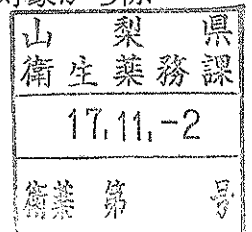 山梨県
衛生薬務課
17.11.-2
衛薬第 号